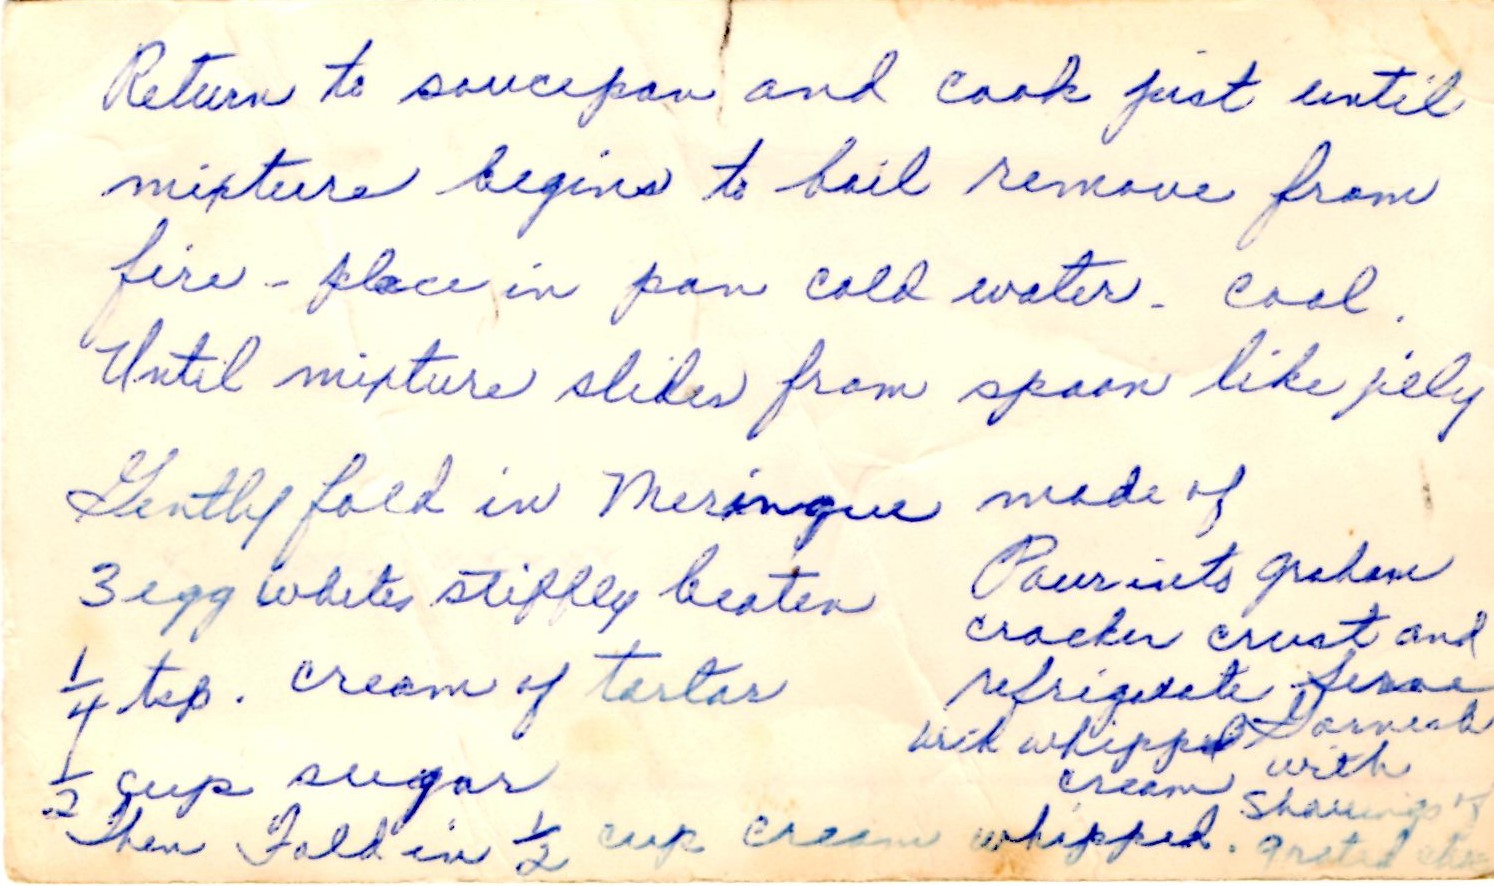 Return to saucepan and cook just until
mixture begins to boil remove from
fire - place in pan cold water - cool.
Until mixture slides from spoon like jelly
Gently fold in Meringue made of
3 egg whites stiffly beaten
1/4 tsp. cream of tartar
1/2 cup sugar
Then Fold in 1/2 cup cream whipped.
Pour into graham
cracker crust and
refrigerate Serve
with whipped
cream
Garnish
with
Shavings of
grated